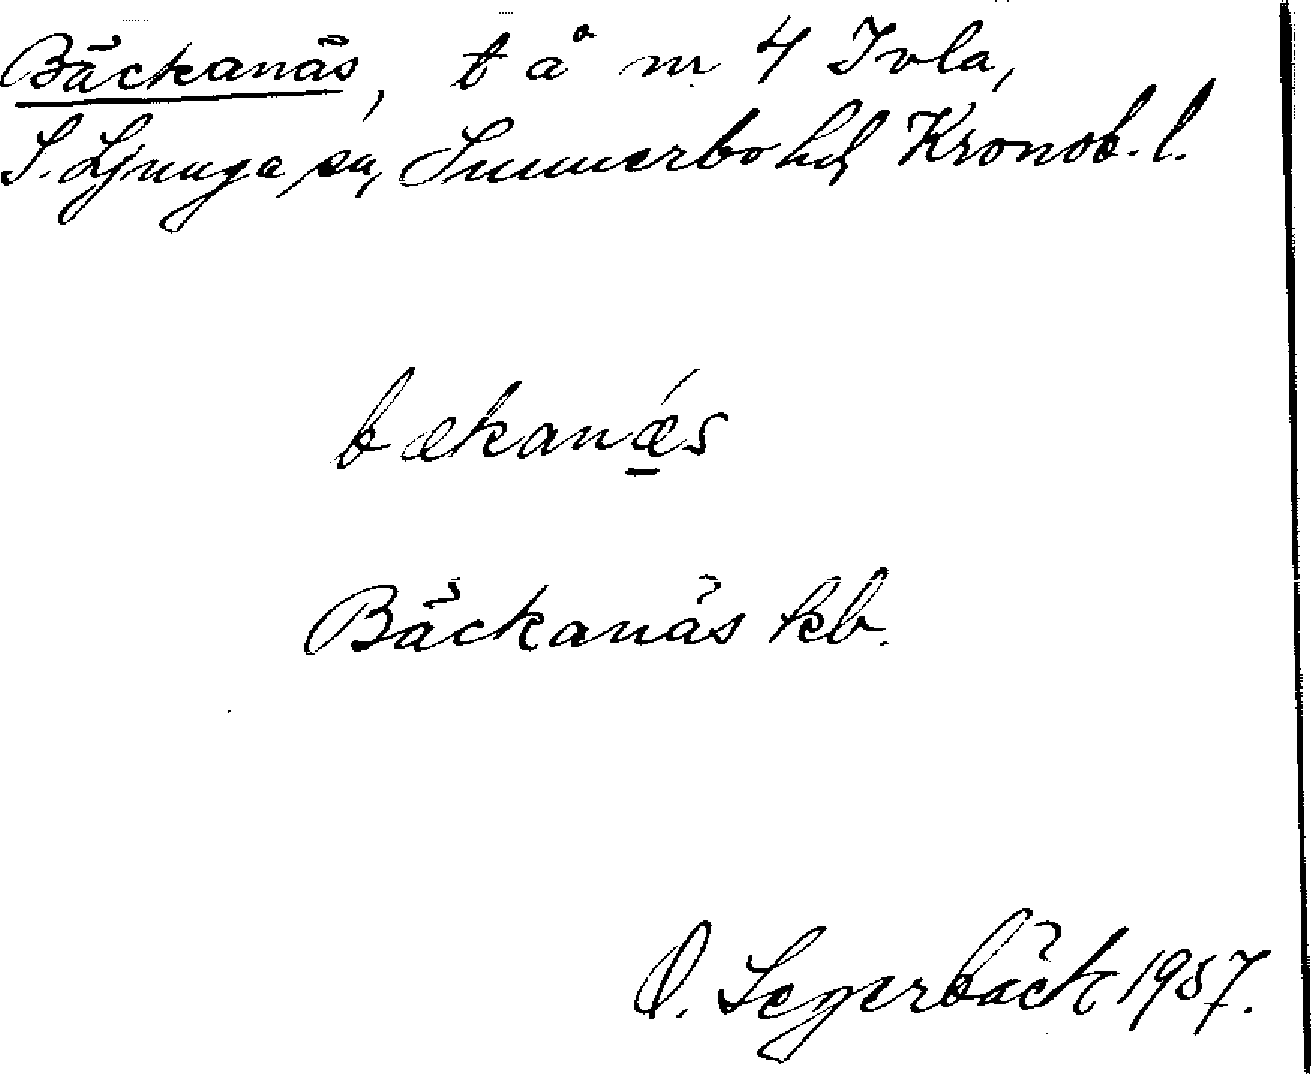 Bäckanäs, t å m 4 Ivla,
S. Ljunga sn, Sunnerbo hd, Kronob. l.
bækanǽs
Bäckanäs kb.
O. Segerbäck 1957.